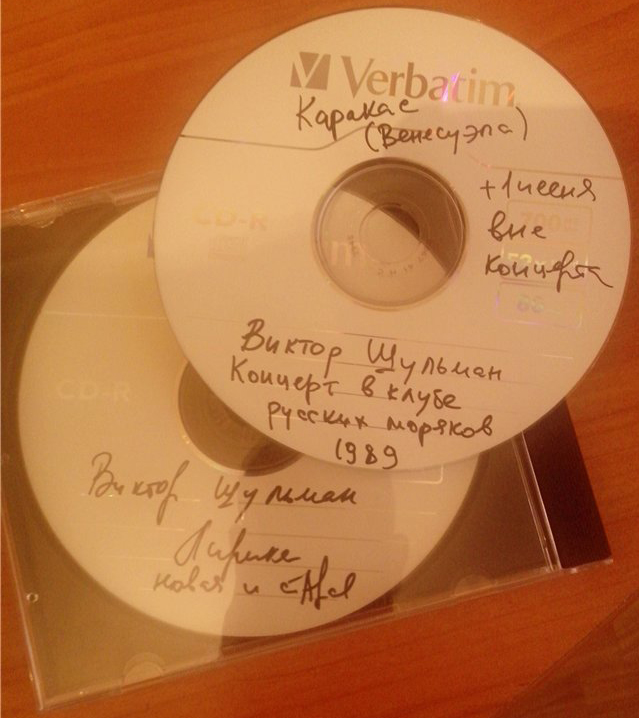 Verbatim
Каракас
(Венесуэла)
+1 песня
вне
концерта
700
52x
CD-R
Виктор Шульман
Концерт в клубе
русских моряков
1989
CD-R
Виктор Шульман
Лирика
новая и стАрая